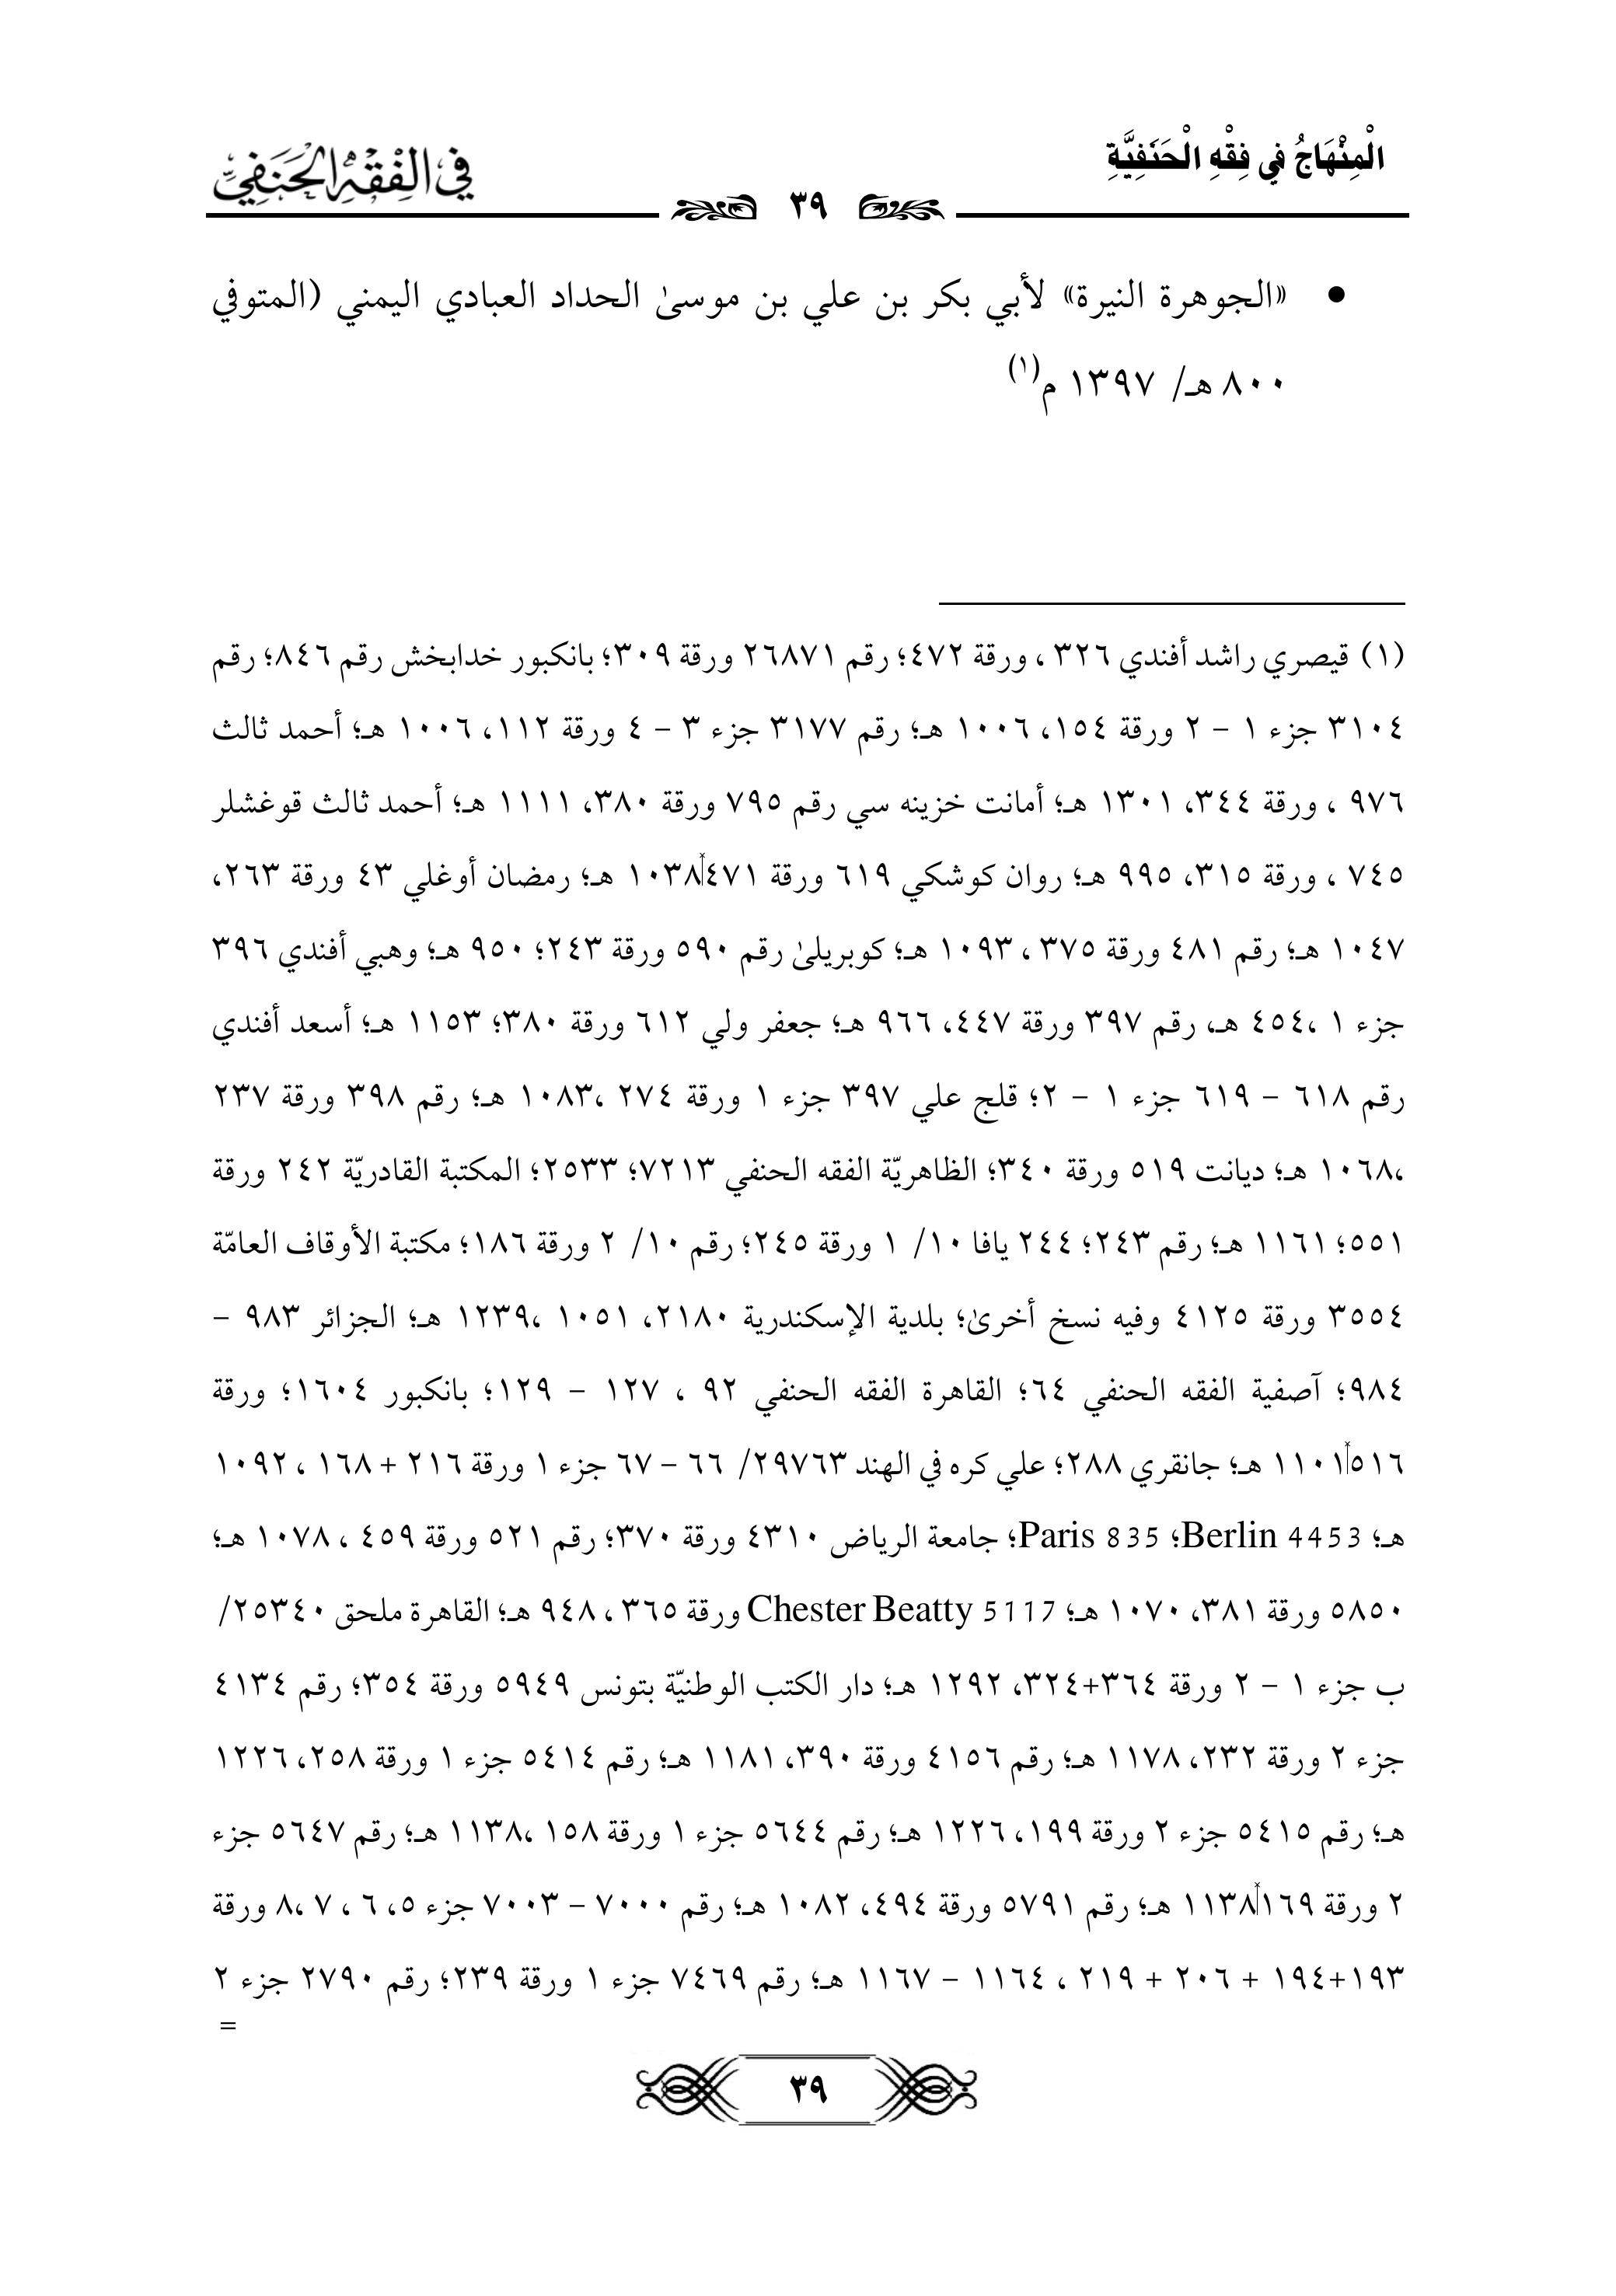 الْمِنْهَاجُ في فِقْهِ الْحَنَفِيَّةِ
في الفِقْهِ الحَنَفِيِّ
٣٩
• «الجوهرة النيرة» لأبي بكر بن علي بن موسىٰ الحداد العبادي اليمني (المتوفي
٨٠٠ هـ/ ١٣٩٧ م(١)
(١) قيصري راشد أفندي ٣٢٦ ، ورقة ٤٧٢؛ رقم ٢٦٨٧١ ورقة ٣٠٩؛ بانكبور خدابخش رقم ٨٤٦؛ رقم
٣١٠٤ جزء ١ – ٢ ورقة ١٥٤، ١٠٠٦ هـ؛ رقم ٣١٧٧ جزء ٣ – ٤ ورقة ١١٢، ١٠٠٦ هـ؛ أحمد ثالث
٩٧٦ ، ورقة ٣٤٤، ١٣٠١ هـ؛ أمانت خزينه سي رقم ٧٩٥ ورقة ٣٨٠، ١١١١ هـ؛ أحمد ثالث قوغشلر
٧٤٥ ، ورقة ٣١٥، ٩٩٥ هـ؛ روان كوشكي ٦١٩ ورقة ٤٧١ ١٠٣٨ هـ؛ رمضان أوغلي ٤٣ ورقة ٢٦٣،
١٠٤٧ هـ؛ رقم ٤٨١ ورقة ٣٧٥ ، ١٠٩٣ هـ؛ كوبريلىٰ رقم ٥٩٠ ورقة ٢٤٣؛ ٩٥٠ هـ؛ وهبي أفندي ٣٩٦
جزء ١ ،٤٥٤ هـ، رقم ٣٩٧ ورقة ٤٤٧، ٩٦٦ هـ؛ جعفر ولي ٦١٢ ورقة ٣٨٠؛ ١١٥٣ هـ؛ أسعد أفندي
رقم ٦١٨ – ٦١٩ جزء ١ – ٢؛ قلج علي ٣٩٧ جزء ١ ورقة ٢٧٤ ،١٠٨٣ هـ؛ رقم ٣٩٨ ورقة ٢٣٧
،١٠٦٨ هـ؛ ديانت ٥١٩ ورقة ٣٤٠؛ الظاهريّة الفقه الحنفي ٧٢١٣؛ ٢٥٣٣؛ المكتبة القادريّة ٢٤٢ ورقة
٥٥١؛ ١١٦١ هـ؛ رقم ٢٤٣؛ ٢٤٤ يافا ١٠/ ١ ورقة ٢٤٥؛ رقم ١٠/ ٢ ورقة ١٨٦؛ مكتبة الأوقاف العامّة
٣٥٥٤ ورقة ٤١٢٥ وفيه نسخ أخرىٰ؛ بلدية الإسكندرية ٢١٨٠، ١٠٥١ ،١٢٣٩ هـ؛ الجزائر ٩٨٣ –
٩٨٤؛ آصفية الفقه الحنفي ٦٤؛ القاهرة الفقه الحنفي ٩٢ ، ١٢٧ – ١٢٩؛ بانكبور ١٦٠٤؛ ورقة
٥١٦ ١١٠١ هـ؛ جانقري ٢٨٨؛ علي كره في الهند ٢٩٧٦٣/ ٦٦ – ٦٧ جزء ١ ورقة ٢١٦ + ١٦٨ ، ١٠٩٢
هـ؛ Berlin 4453؛ Paris 835؛ جامعة الرياض ٤٣١٠ ورقة ٣٧٠؛ رقم ٥٢١ ورقة ٤٥٩ ، ١٠٧٨ هـ؛
٥٨٥٠ ورقة ٣٨١، ١٠٧٠ هـ؛ Chester Beatty 5117 ورقة ٣٦٥ ، ٩٤٨ هـ؛ القاهرة ملحق ٢٥٣٤٠/
ب جزء ١ – ٢ ورقة ٣٦٤+٣٢٤، ١٢٩٢ هـ؛ دار الكتب الوطنيّة بتونس ٥٩٤٩ ورقة ٣٥٤؛ رقم ٤١٣٤
جزء ٢ ورقة ٢٣٢، ١١٧٨ هـ؛ رقم ٤١٥٦ ورقة ٣٩٠، ١١٨١ هـ؛ رقم ٥٤١٤ جزء ١ ورقة ٢٥٨، ١٢٢٦
هـ؛ رقم ٥٤١٥ جزء ٢ ورقة ١٩٩، ١٢٢٦ هـ؛ رقم ٥٦٤٤ جزء ١ ورقة ١٥٨ ،١١٣٨ هـ؛ رقم ٥٦٤٧ جزء
٢ ورقة ١٦٩ ١١٣٨ هـ؛ رقم ٥٧٩١ ورقة ٤٩٤، ١٠٨٢ هـ؛ رقم ٧٠٠٠ – ٧٠٠٣ جزء ٥، ٦ ، ٧ ،٨ ورقة
١٩٣+١٩٤ + ٢٠٦ + ٢١٩ ، ١١٦٤ – ١١٦٧ هـ؛ رقم ٧٤٦٩ جزء ١ ورقة ٢٣٩؛ رقم ٢٧٩٠ جزء ٢
=
٣٩